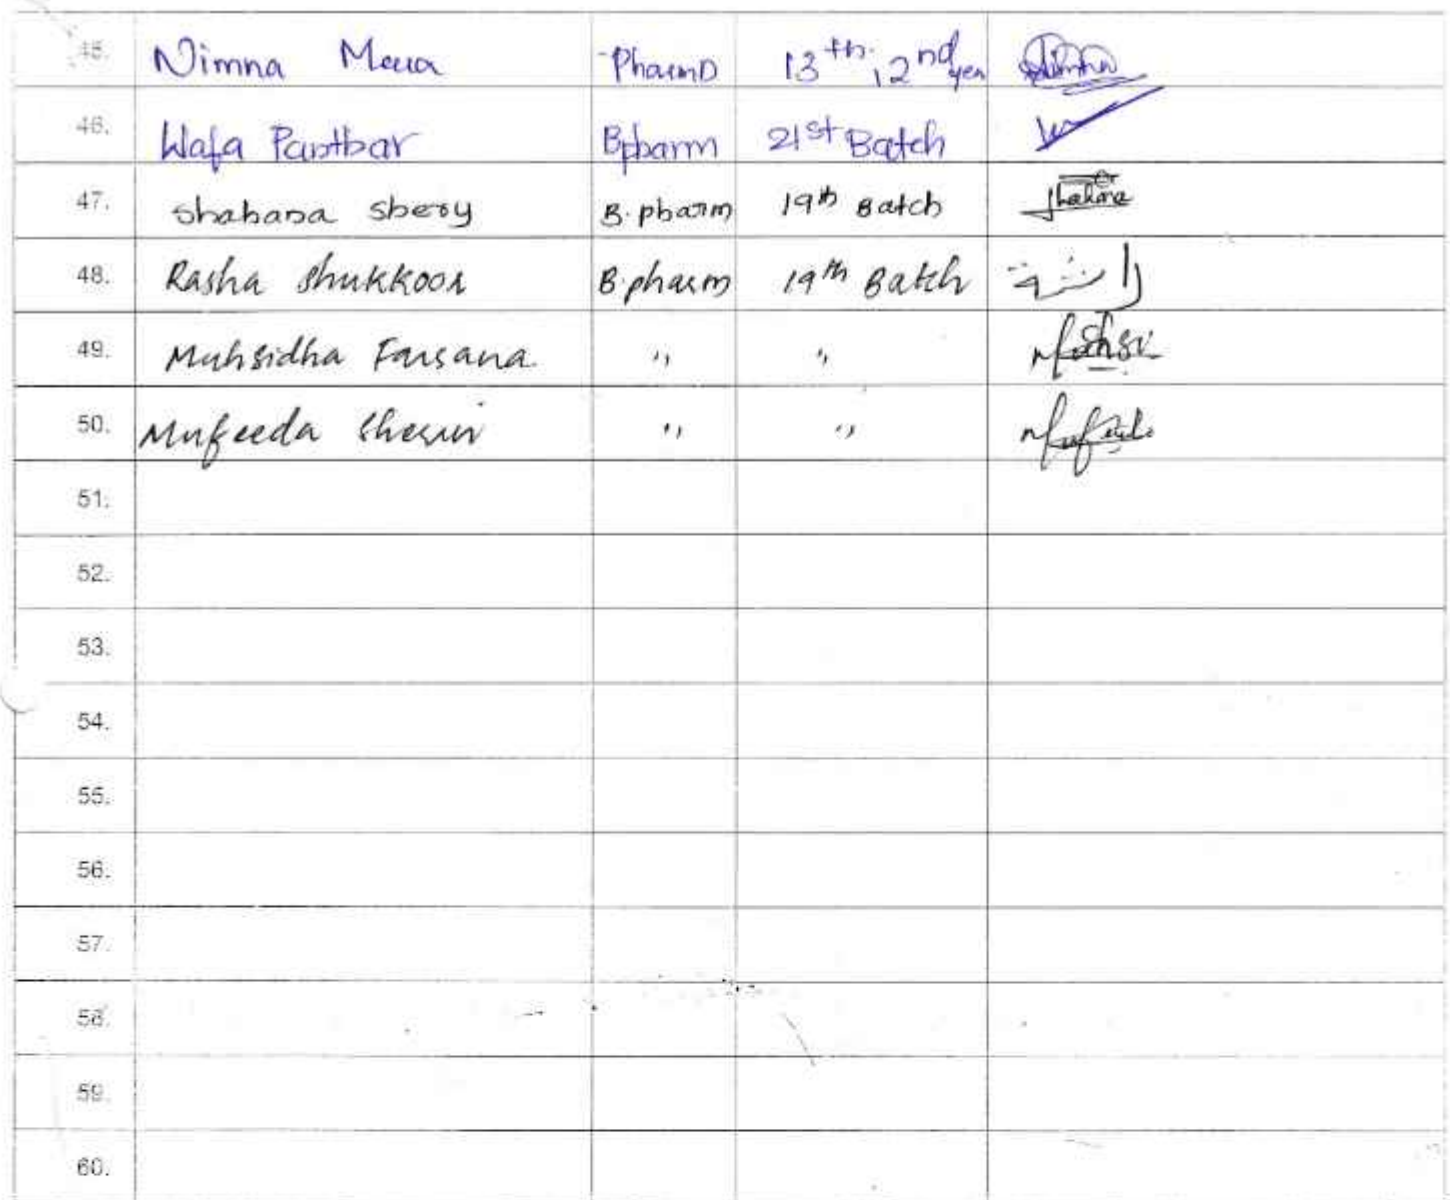 45. Nimna Meua PharmD 13th, 2nd year Nimna
46. Wafa Panthar Bpharm 21st Batch
47. shahana shery B.pharm 19th Batch Shahana
48. Rasha Shukkoor B.pharm 19th Batch راشة
49. Muhsidha Farsana. " "
50. Mufeeda Sherin " " Mufeeda
51.
52.
53.
54.
55.
56.
57.
58.
59.
60.